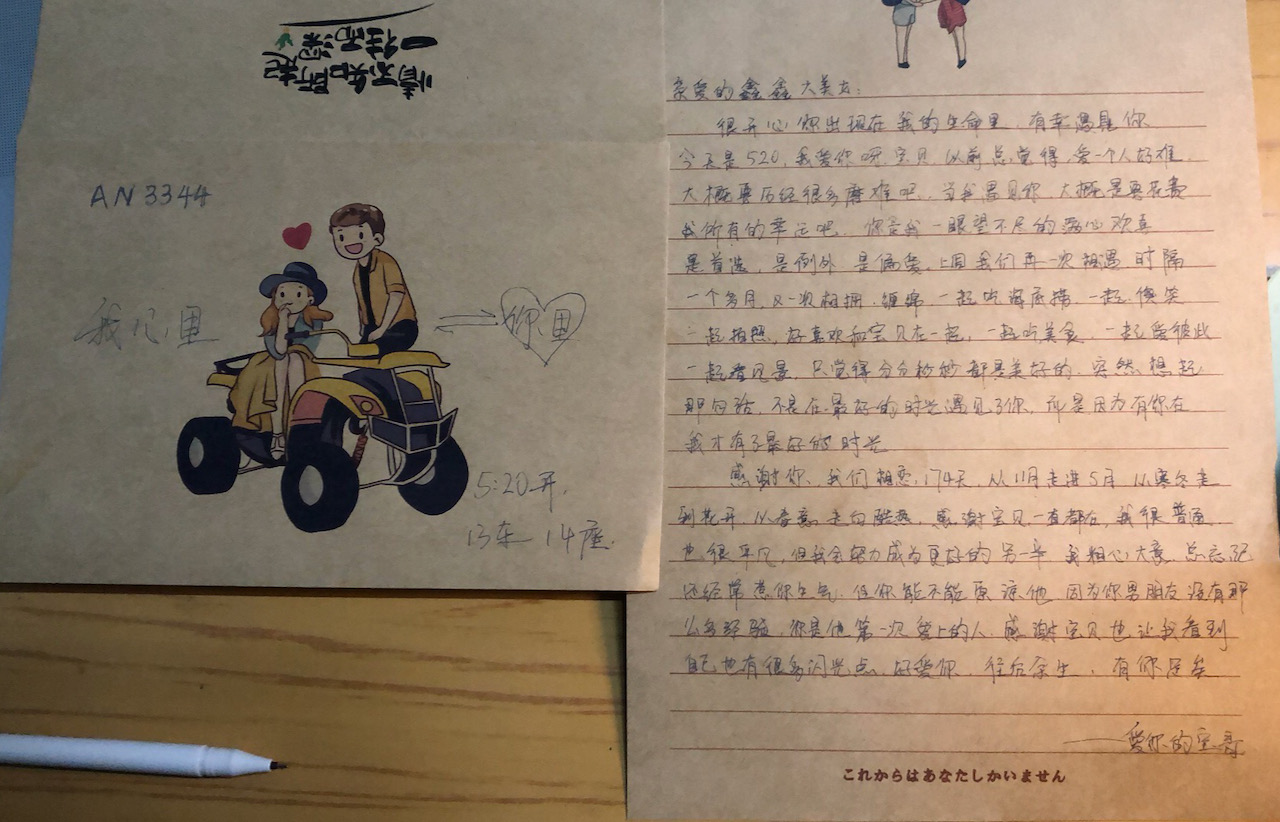 情不知所起
一往而深
AN 3344
我心里
你心里
5:20开,
13车 14座.
亲爱的鑫鑫大美女:
很开心你出现在我的生命里,有幸遇见你
今天是520,我爱你呀宝贝,以前总觉得,爱一个人好难,
大概要历经很多磨难吧,当我遇见你,大概是要花费
我所有的幸运吧,你是我一眼望不尽的满心欢喜
是首选,是例外,是偏爱,上周我们再一次相遇,时隔
一个多月,又一次相拥,缠绵,一起吃海底捞,一起微笑
一起拍照,好喜欢和宝贝在一起,一起吃美食,一起爱彼此
一起看风景,只觉得分分秒秒都是美好的,突然想起
那句话,不是在最好的时光遇见了你,而是因为有你在
我才有了最好的时光
感谢你、我们相恋,174天,从11月走进5月,从寒冬走
到花开,从春意走向酷热,感谢宝贝一直都在,我很普通
也很平凡,但我会努力成为更好的另一半,我粗心大意,总忘记
还经常惹你生气,但你能不能原谅他,因为你男朋友没有那
么多经验,你是他第一次爱上的人,感谢宝贝也让我看到
自己也有很多闪光点,好爱你,往后余生,有你足矣
——爱你的 哥
これからはあなたしかいません